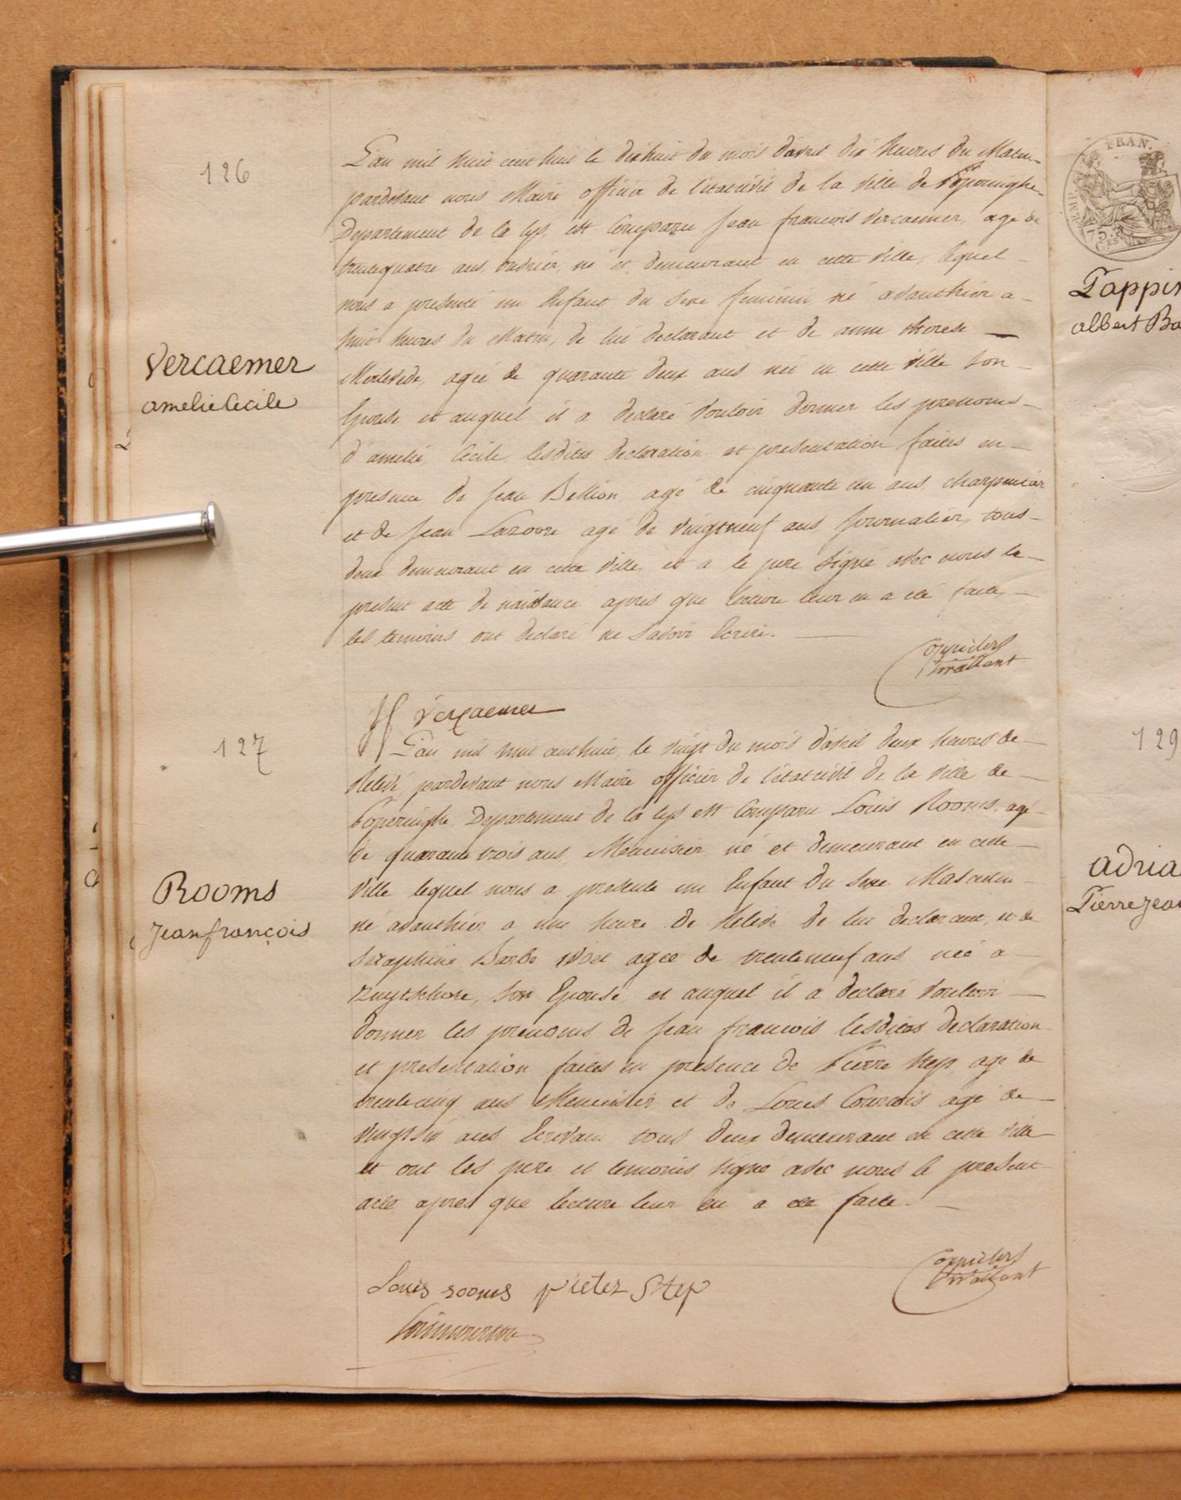 126
L'an mil huit cent huit le dixhuit du mois d'avril dix heures du Matin
pardevant nous Maire officier de l'etat civil de la Ville de Poperinghe
Departement de la Lys est Comparu Jean francois Vercaemer agé de
trentequatre ans, ouvrier, né et demeurant en cette Ville, lequel
nous a presenté un Enfant du Sexe feminin né avanthier a
huit heures du Matin, de lui declarant et de anne therese
Merlevede, agée de quarante deux ans née en cette Ville Son
Vercaemer
amelie Cecile
Epouse et auquel il a declaré Vouloir donner les prenoms
d'amelie Cecile lesdites declaration et presentation faites en
presence de Jean Bellion agé de cinquante un ans charpentier
et de Jean agé de Vingtneuf ans Journalier, tous
deux demeurant en cette Ville, et a le pere Signé avec nous le
present acte de naissance apres que lecture leur en a eté faite
les temoins ont declaré ne Savoir Ecrire.
Vercaemer
127
L'an mil huit cent huit, le Vingt du mois d'avril deux heures de
Relevé, pardevant nous Maire officier de l'etat civil de la Ville de
Poperinghe Departement de la Lys est Comparu Louis Rooms, agé
de quarante trois ans, Menuisier né et demeurant en cette
Rooms
Jean françois
Ville lequel nous a presenté un Enfant du Sexe Masculin
né avanthier a une heure de Relevé de lui declarant, et de
Seraphine Barbe agée de trenteneuf ans née a
Son Epouse et auquel il a declaré Vouloir
donner les prenoms de Jean francois lesdites declaration
et presentation faites en presence de Pierre Step agé de
trentecinq ans Menuisier et de Louis agé de
Vingtsix ans Ecrivain tous deux demeurant en cette Ville
et ont les pere et temoins signé avec nous le present
acte apres que lecture leur en a eté faite.
Louis rooms pieter Step
FRAN
75
Tappin
albert Ba
129
adria
Pierre Jean